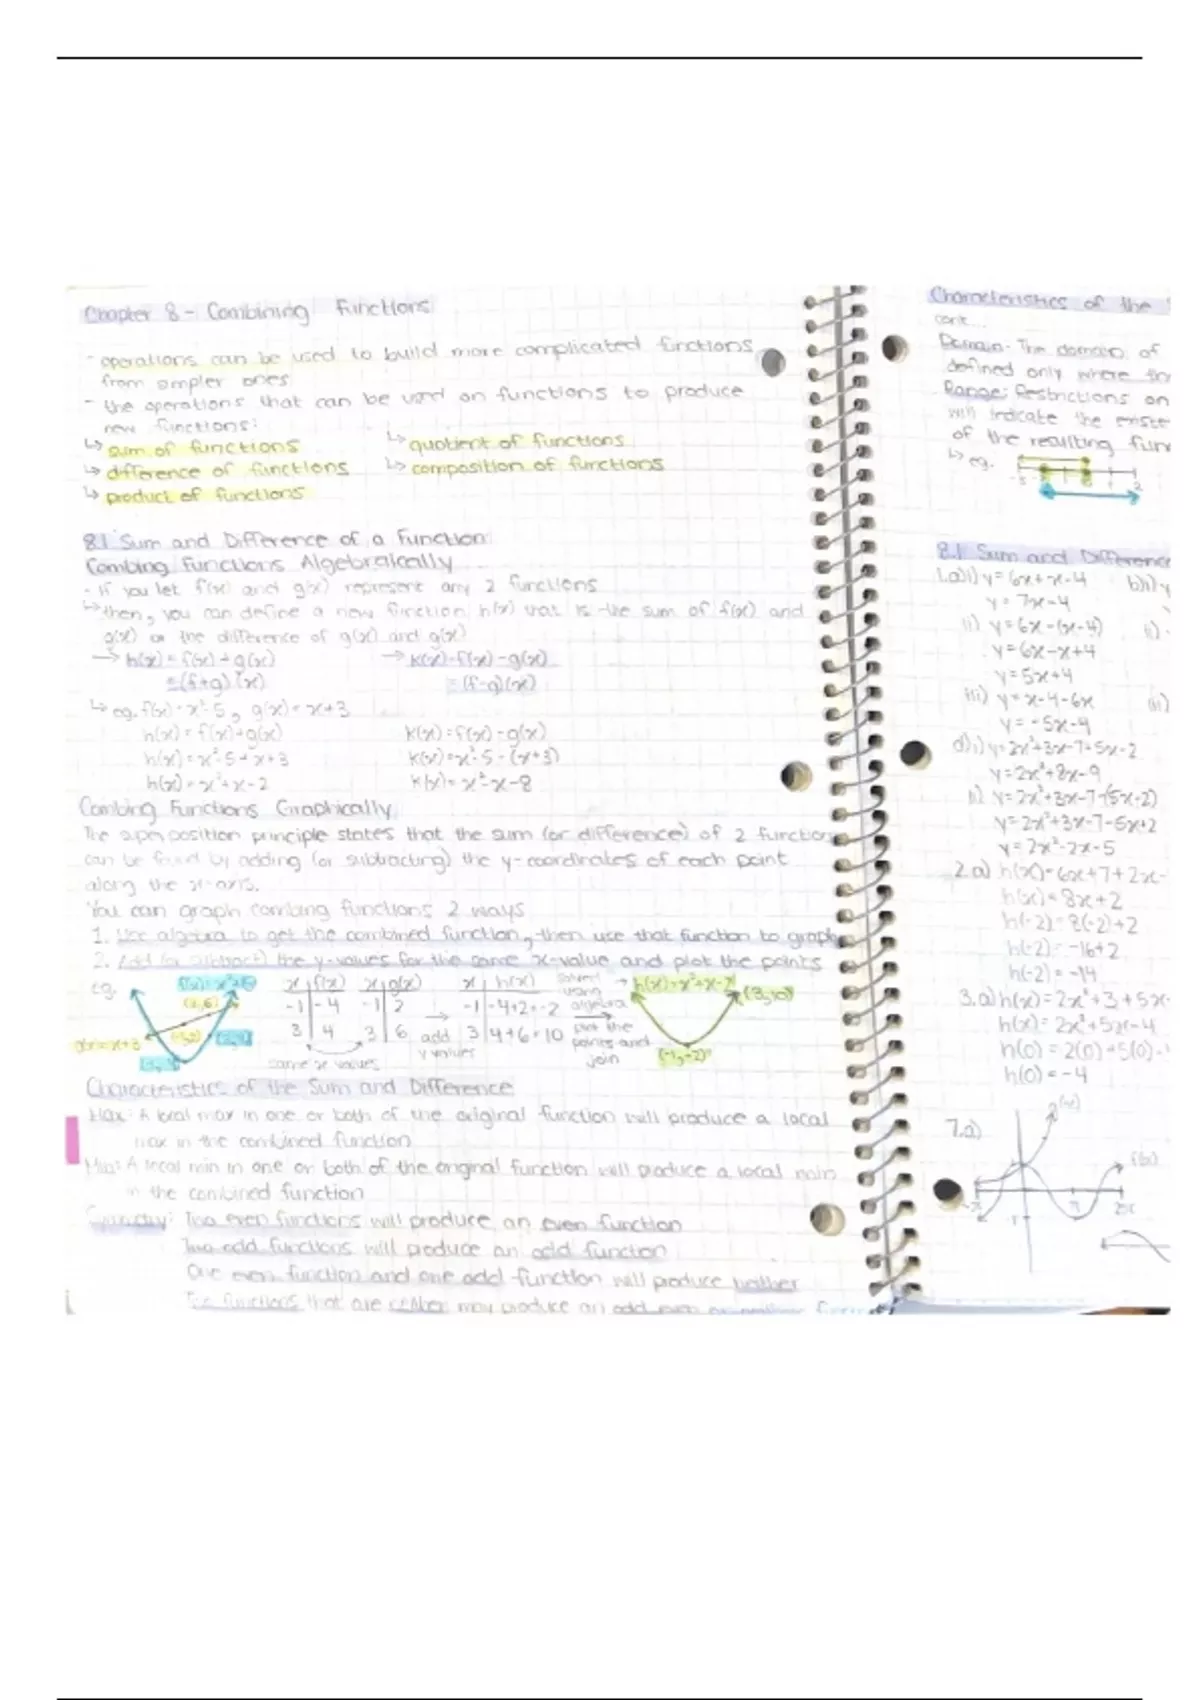 Chapter 8 - Combining Functions
- operations can be used to build more complicated functions
from simpler ones
- the operations that can be used on functions to produce
new functions:
↳ sum of functions
↳ quotient of functions
↳ difference of functions
↳ composition of functions
↳ product of functions
8.1 Sum and Difference of a Function
Combing Functions Algebraically
- If you let f(x) and g(x) represent any 2 functions
↳ then, you can define a new function h(x) that is the sum of f(x) and
g(x) or the difference of g(x) and g(x)
→ h(x) = f(x) + g(x)
→ k(x) = f(x) - g(x)
= (f+g)(x)
= (f-g)(x)
↳ eg. f(x) = x²-5, g(x) = x+3
h(x) = f(x)+g(x)
k(x) = f(x) - g(x)
h(x) = x²-5 + x+3
k(x) = x²-5 - (x+3)
h(x) = x²+x-2
k(x) = x²-x-8
Combing Functions Graphically
The superposition principle states that the sum (or difference) of 2 function
can be found by adding (or subtracting) the y-coordinates of each point
along the x-axis.
You can graph combing functions 2 ways
1. Use algebra to get the combined function, then use that function to graph
2. Add (or subtract) the y-values for the same x-value and plot the points
eg.
(3,6)
x f(x)
-1 -4
3 4
x g(x)
-1 2
3 6
same x values
→ add
y values
x h(x)
-1 -4+2=-2
3 4+6=10
using
algebra
plot the
points and
join
(3,10)
(-1,-2)
Characteristics of the Sum and Difference
Max: A local max in one or both of the original function will produce a local
max in the combined function
Min: A local min in one or both of the original function will produce a local min
in the combined function
Symmetry: Two even functions will produce an even function
Two odd functions will produce an odd function
One even function and one odd function will produce neither
functions that are neither may produce an odd even or neither
Characteristics of the
cont...
Domain: The domain of
defined only where
Range: Restrictions on
will indicate the
of the resulting
↳ eg.
8.1 Sum and Difference
1.a)i) y = 6x+x-4
b)i) y
y = 7x-4
ii) y = 6x-(x-4)
y = 6x-x+4
y = 5x+4
iii) y = x-4-6x
y = -5x-4
d)i) y = 2x²+3x-7+5x-2
y = 2x²+8x-9
ii) y = 2x²+3x-7-(5x-2)
y = 2x²+3x-7-5x+2
y = 2x²-2x-5
2.a) h(x) = 6x+7+2x-
h(x) = 8x+2
h(-2) = 8(-2)+2
h(-2) = -16+2
h(-2) = -14
3.a) h(x) = 2x²+3+5x-
h(x) = 2x²+5x-4
h(0) = 2(0)+5(0)-
h(0) = -4
7.a)